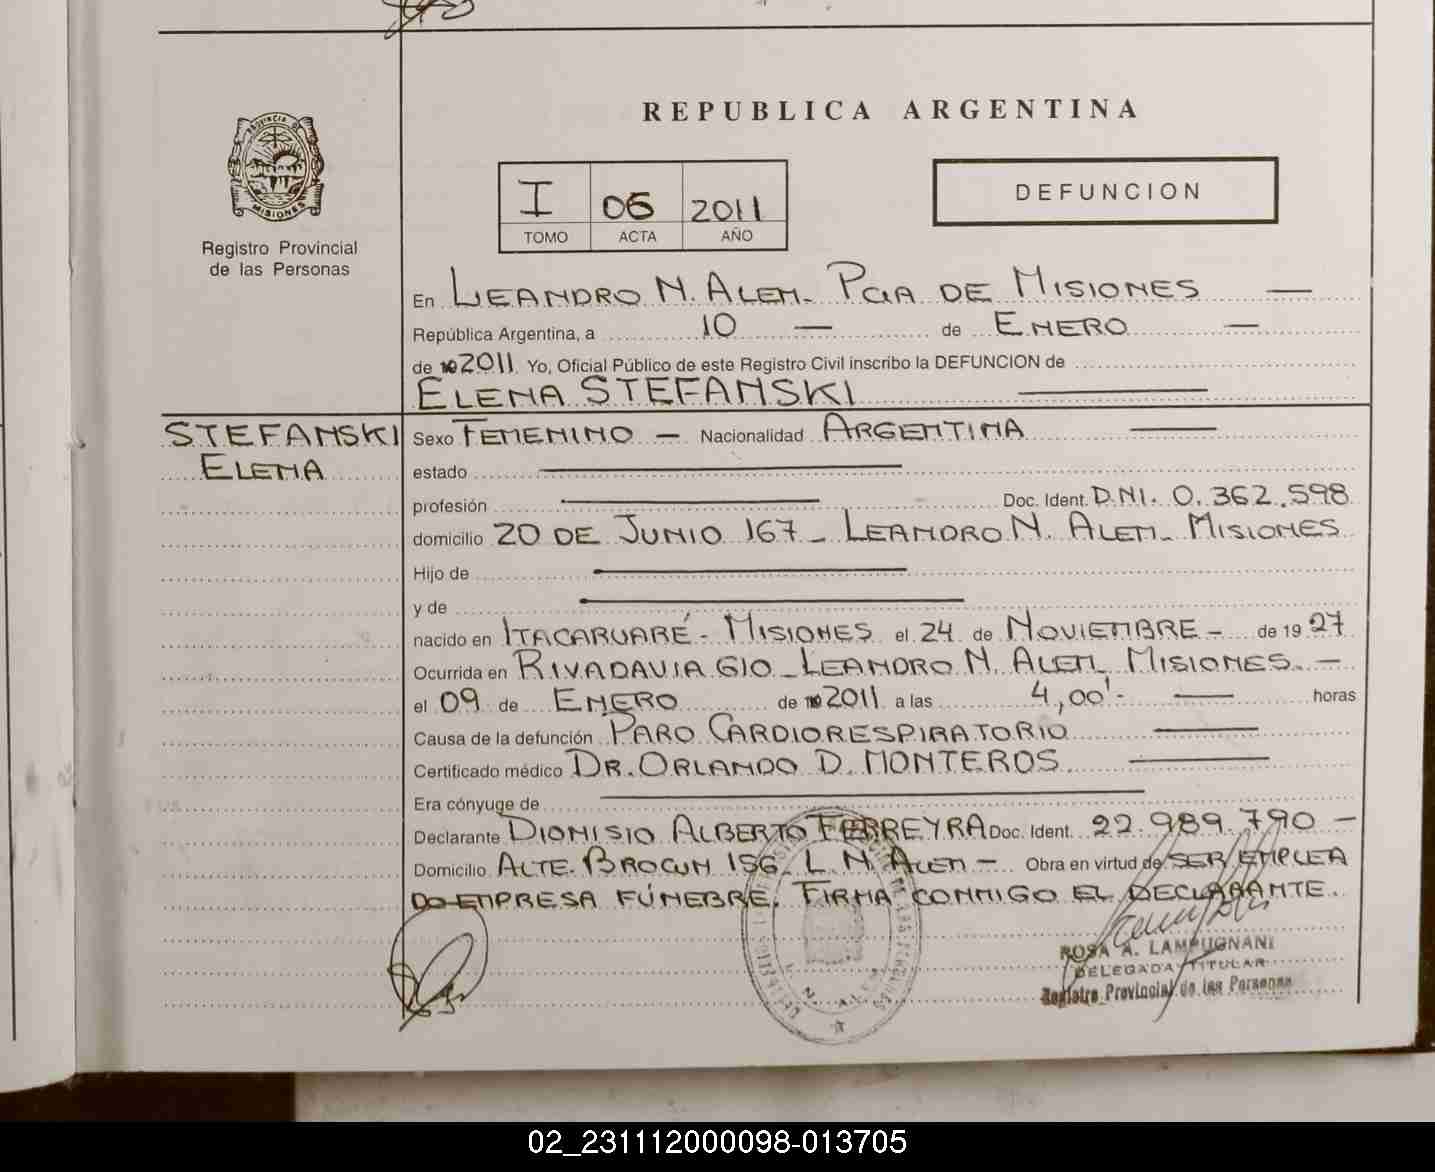 REPUBLICA ARGENTINA
PROVINCIA DE
MISIONES
Registro Provincial
de las Personas
I 06 2011
TOMO ACTA AÑO
DEFUNCION
En LEANDRO N. ALEM. PCIA DE MISIONES —
República Argentina, a 10 — de ENERO —
de 2011 Yo, Oficial Público de este Registro Civil inscribo la DEFUNCION de
ELENA STEFANSKI
STEFANSKI
ELENA
Sexo FEMENINO — Nacionalidad ARGENTINA
estado
profesión Doc. Ident. D.N.I. 0.362.598
domicilio 20 DE JUNIO 167 - LEANDRO N. ALEM - MISIONES
Hijo de
y de
nacido en ITACARUARÉ - MISIONES el 24 de NOVIEMBRE - de 1927
Ocurrida en RIVADAVIA 610 - LEANDRO N. ALEM - MISIONES. -
el 09 de ENERO de 2011 a las 4,00'- horas
Causa de la defunción PARO CARDIORESPIRATORIO
Certificado médico DR. ORLANDO D. MONTEROS
Era cónyuge de
Declarante DIONISIO ALBERTO FERREYRA Doc. Ident. 22.989.790 —
Domicilio ALTE. BROWN 156 L. N. ALEM - Obra en virtud de SER EMPLEA
DO EMPRESA FÚNEBRE. FIRMA CONMIGO EL DECLARANTE.
ROSA A. LAMPUGNANI
DELEGADA TITULAR
Registro Provincial de las Personas
02_231112000098-013705